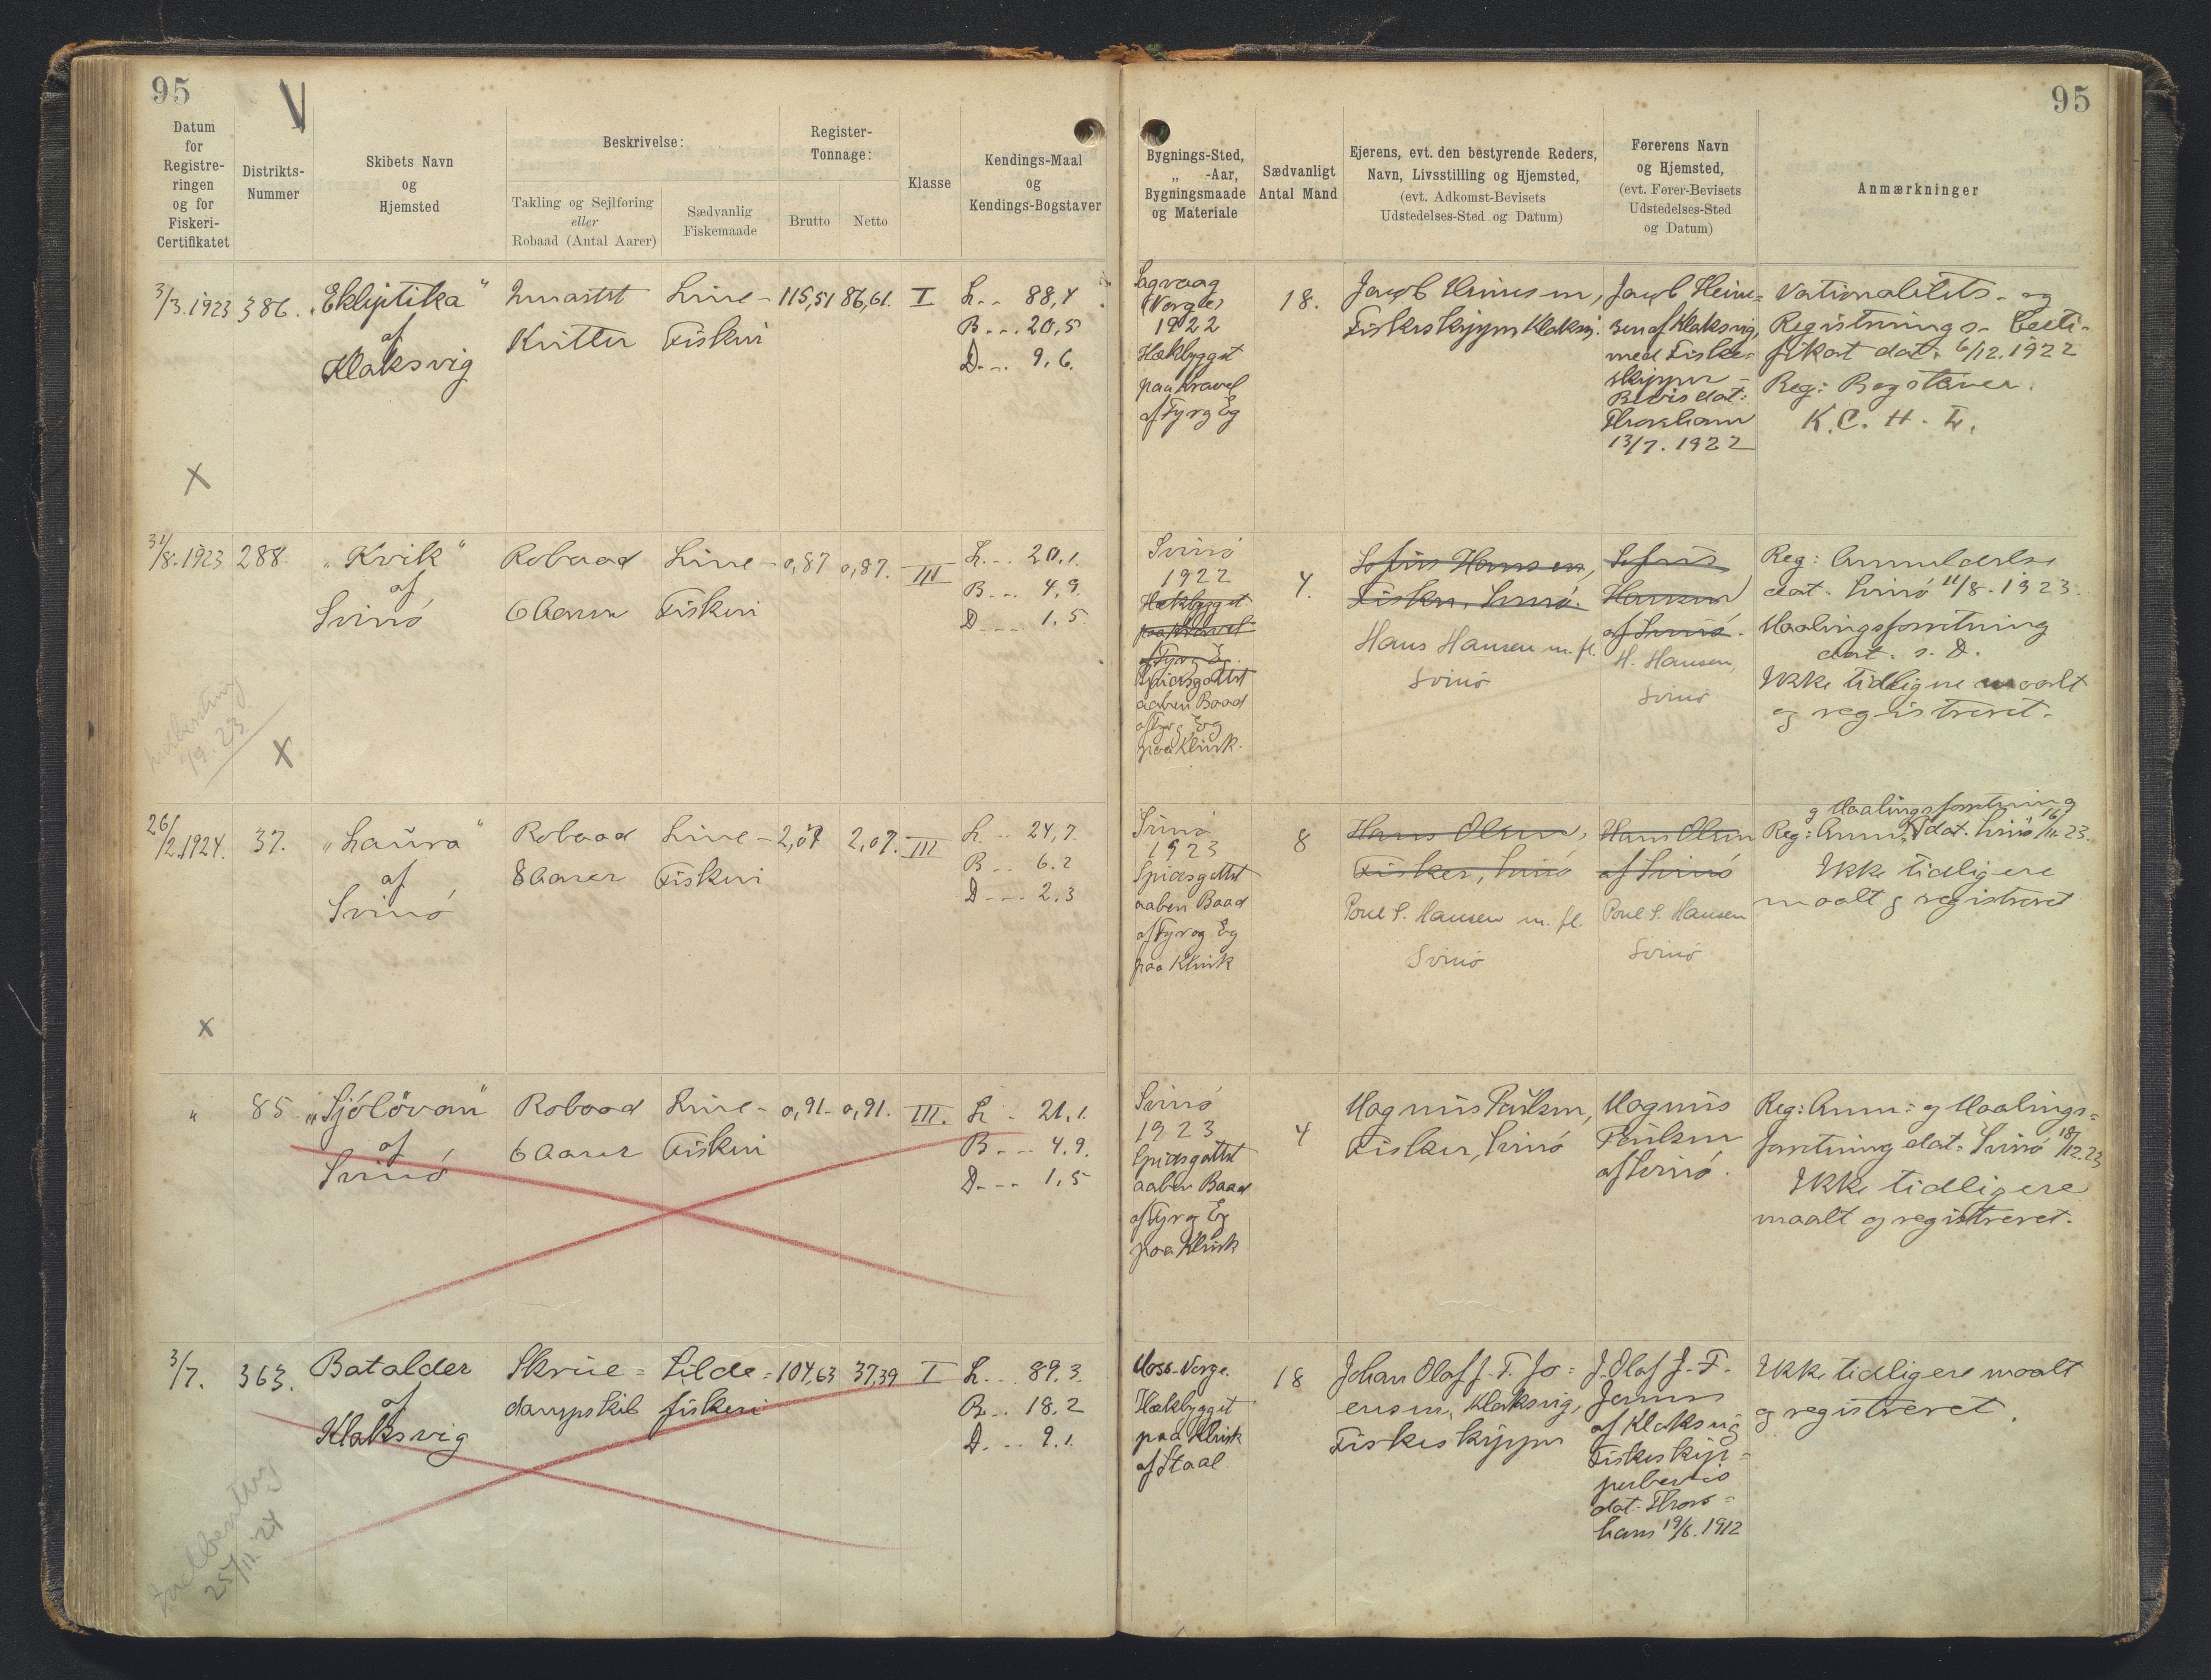 95
V
95
Datum
for
Registre-
ringen
og for
Fiskeri-
Certifikatet
Distrikts-
Nummer
Skibets Navn
og
Hjemsted
Beskrivelse:
Takling og Sejlføring
eller
Robaad (Antal Aarer)
Sædvanlig
Fiskemaade
Register-
Tonnage:
Brutto
Netto
Klasse
Kendings-Maal
og
Kendings-Bogstaver
Bygnings-Sted,
„ -Aar,
Bygningsmaade
og Materiale
Sædvanligt
Antal Mand
Ejerens, evt. den bestyrende Reders,
Navn, Livsstilling og Hjemsted,
(evt. Adkomst-Bevisets
Udstedelses-Sted og Datum)
Førerens Navn
og Hjemsted,
(evt. Fører-Bevisets
Udstedelses-Sted
og Datum)
Anmærkninger
3/3.1923
386.
„Ekliptika"
af
Klaksvig
2mastet
Kutter
Line-
Fiskeri
115,51
86,61.
I
L... 88,4
B... 20,5
D... 9,6.
Sagvaag
(Norge)
1922
Hækbygget
paa Kravel
af Fyr og Eg
18.
Jacob Heinesen,
Fiskeskipper Klaksvig.
Jacob Heine=
sen af Klaksvig,
med Fiske=
skipper-
Bevis dat:
Thorshavn
13/7.1922
Nationalitets- og
Registrerings- Certi-
fikat dat: 6/12.1922
Reg: Bogstaver.
K.C.H.
X
31/8.1923
288.
„Kvik"
af
Svinö
Robaad
6 Aarer
Line-
Fiskeri
0,87
0,87.
III
L... 20,1.
B... 4,9.
D.... 1,5
Svinö
1922
Hækbygget
paa Kravel
af Fyr og Eg
Spidsgattet
aaben Baad
af Fyr og Eg
paa Klink.
4.
Sofus Hansen,
Fisker, Svinö.
Hans Hansen m. fl.
Svinö
Sofus
Hansen
af Svinö.
H. Hansen,
Svinö
Reg: Anmeldelse
dat. Svinö 11/8.1923.
Maalingsforretning
dat. s. D.
Ikke tidligere maalt
og registreret.
Indberetning
19.23
X
26/2.1924.
37.
„Laura"
af
Svinö
Robaad
8 Aarer
Line-
Fiskeri
2,07
2,07.
III
L... 24,7.
B... 6.2
D.... 2,3
Svinö
1923
Spidsgattet
aaben Baad
af Fyr og Eg
paa Klink
8
Hans Olsen,
Fisker, Svinö
Poul S. Hansen m. fl.
Svinö
Hans Olsen
af Svinö
Poul S. Hansen
Svinö
og Maalingsforretning
Reg: Anm: dat. Svinö 16/11.23.
Ikke tidligere
maalt og registreret
X
"
85
„Sjólövan"
af
Svinö
Robaad
6 Aarer
Line-
Fiskeri
0,91
0,91.
III.
L. 21,1.
B... 4.9.
D... 1,5
Svinö
1923
Spidsgattet
aaben Baad
af Fyr og Eg
paa Klink
4
Magnus Poulsen,
Fisker, Svinö
Magnus
Poulsen
af Svinö.
Reg: Anm: og Maalings=
forretning dat: Svinö 18/12.23
Ikke tidligere
maalt og registreret.
3/7.
363.
Batalder
af
Klaksvig
Skrue=
dampskib
Silde=
fiskeri
104,63
37,39
I
L... 89.3.
B... 18.2
D... 9.1.
Moss. Norge.
Hækbygget
paa Klink
af Staal
18
Johan Olaf J. F. Jo=
ensen, Klaksvig,
Fiskeskipper
J. Olaf J. F.
Joensen
af Klaksvig
Fiskeskip=
perbevis
dat. Thors=
havn 19/6.1912
Ikke tidligere maalt
og registreret.
Indberetning
25/11.24